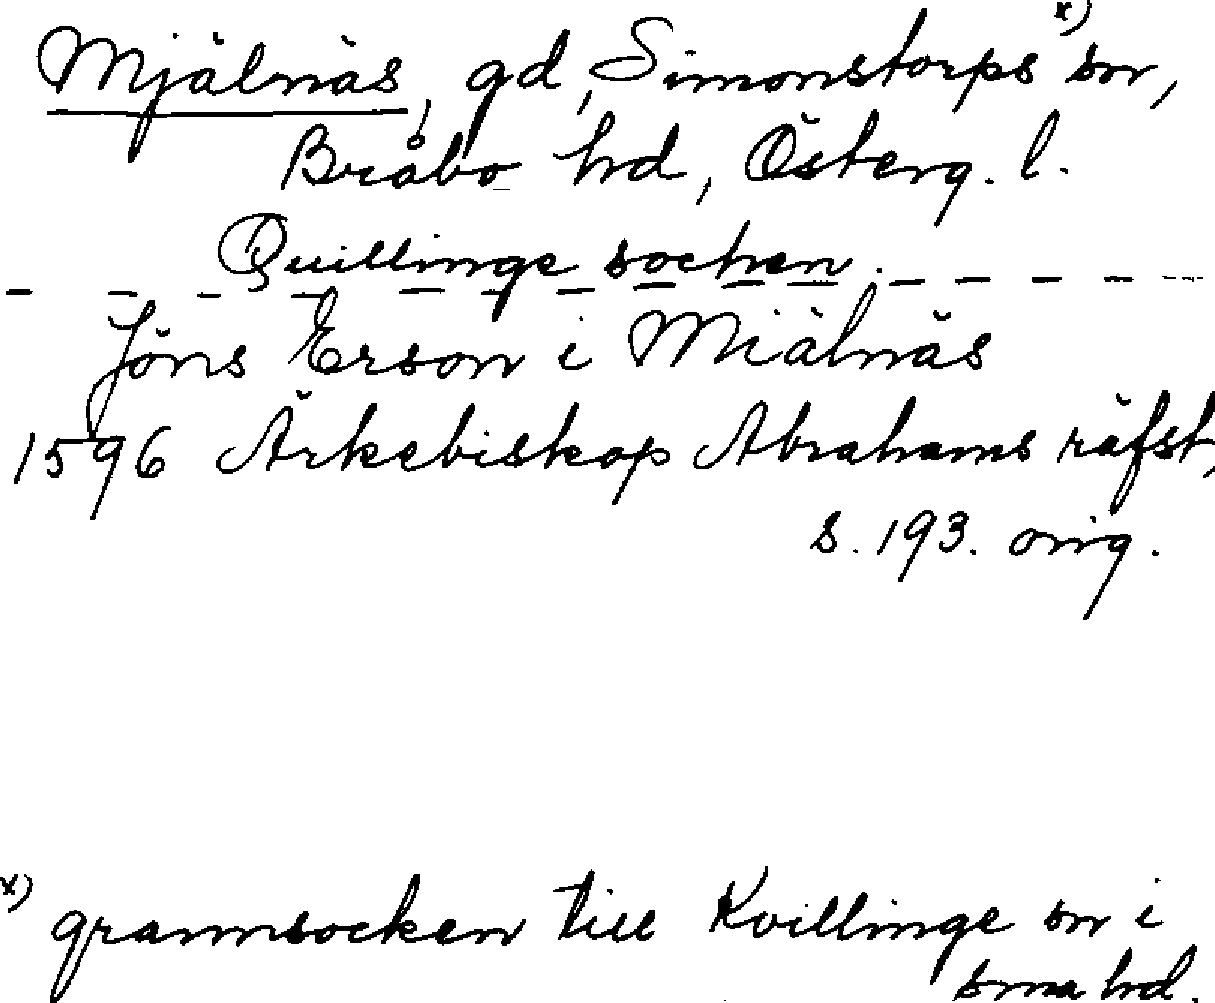 Mjälnäs, gd, Simonstorps x) sn,
Bråbo hd, Österg. l.
Quillinge sochen.
Jöns Erson i Miälnäs
1596 Ärkebiskop Abrahams räfst,
s. 193. orig.
x) grannsocken till Kvillinge sn i
sma hd.